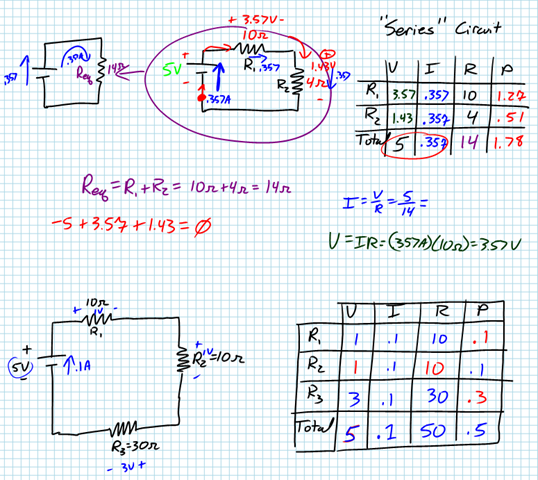 "Series" Circuit
+ 3.57V -
10Ω
R₁ .357
5V
+
-
R₂ 4Ω
1.43V
.357
.357A
.357
.357A
Req 14Ω
V I R P
R₁ 3.57 .357 10 1.27
R₂ 1.43 .357 4 .51
Total 5 .357 14 1.78
Req = R₁ + R₂ = 10Ω + 4Ω = 14Ω
-5 + 3.57 + 1.43 = Ø
I = V/R = 5/14 =
V = IR = (.357A)(10Ω) = 3.57V
10Ω
+ 1V -
R₁
+
5V
-
.1A
+
R₂ = 10Ω
1V
-
R₃ = 30Ω
- 3V +
V I R P
R₁ 1 .1 10 .1
R₂ 1 .1 10 .1
R₃ 3 .1 30 .3
Total 5 .1 50 .5